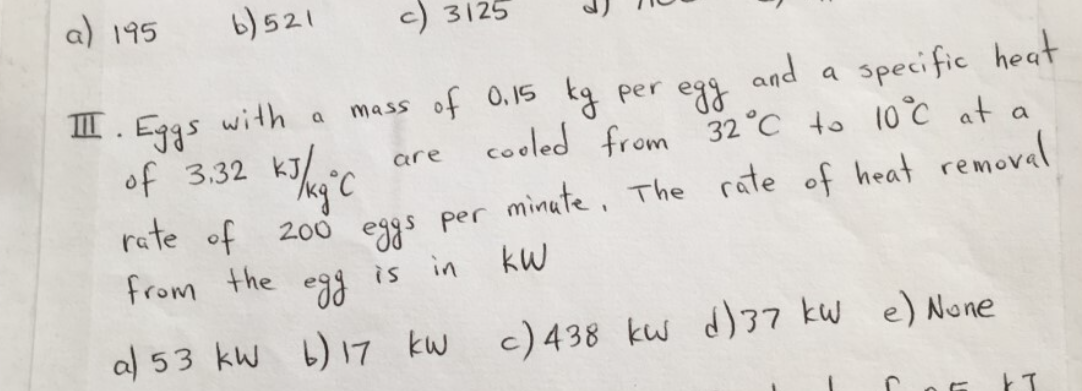 a) 195 b) 521 c) 3125 d)
III. Eggs with a mass of 0.15 kg per egg and a specific heat
of 3.32 kJ/kg°C are cooled from 32°C to 10°C at a
rate of 200 eggs per minute. The rate of heat removal
from the egg is in kW
a) 53 kW b) 17 kW c) 438 kW d) 37 kW e) None